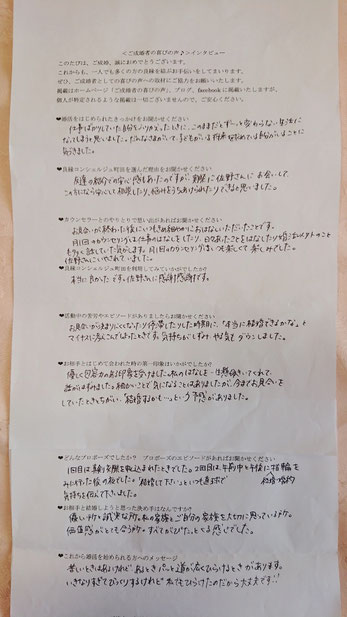 ＜ご成婚者の喜びの声♪＞インタビュー
このたびは、ご成婚、誠におめでとうございます。
これからも、一人でも多くの方の良縁を結ぶお手伝いをしてまいります。
ぜひ、ご成婚者の喜びの声への取材にご協力をお願いいたします。
掲載はホームページ「ご成婚者の声」、ブログ、facebookに掲載いたしますが、
個人が特定されるような掲載は一切ございませんので、ご安心ください。
❤婚活をはじめられたきっかけをお聞かせください
仕事ばかりしていた自分をふりかえったときに、このままだとずーっと変わらない生活に
なってしまうと思いました。
気づきました。
❤良縁コンシェルジュ町田を選んだ理由をお聞かせください
友達の紹介での安心感もあったのですが、実際に佐野さんにお会いして、
この方になら安心して相談したり、悩みをうちあけられたりできると思いました。
❤カウンセラーとのやりとりで思い出があればお聞かせください
お見合いが終わった後に
月1回のカウンセリングは仕事のはなしをしたり、日々あったことをはなしたり婚活以外のこと
も多く話していた気がします。月1回のカウンセリングはいつも楽しくて楽しみでした。
佐野さんにいやされていました。
❤良縁コンシェルジュ町田を利用してみていかがでしたか？
本当に良かったです。佐野さんに感謝感謝です。
❤活動中の苦労やエピソードがありましたらお聞かせください
お見合いが決まりにくくなったり停滞したりした時期に、「本当に結婚できるかな。」と
マイナスに考えこんでしまったときです。気持ちが少しずつやる気もダウンしました。
❤お相手とはじめて会われた時の第一印象はいかがでしたか？
優しく包容力のある印象を受けました。私のはなしを一生懸命きいてくれて、
話がはずみました。細かいことで気になることはありましたが、今までお見合いを
していたときとちがい、"結婚するかも…"という予感がありました。
❤どんなプロポーズでしたか？　プロポーズのエピソードがあればお聞かせください
1回目は真剣交際を申込まれたときでした。2回目は、午前中と午後に指輪を
みに行った後の夜でした。"結婚して下さい"といつも直球で 結婚・婚約
気持ちを伝えて下さいました。
❤お相手と結婚しようと思った決め手はなんですか？
優しい所と誠実な所。私の家族とご自分の家族を大切に思っている所。
価値感がとても合う所。すべてがぴたっとくる感じでした。
❤これから婚活を始められる方へのメッセージ
苦しいときはあるけれど、あるときパーッと道が広くひらけるときがあります。
いきなりすぎてびっくりするけれど、私でもひらけたのだから大丈夫です!!